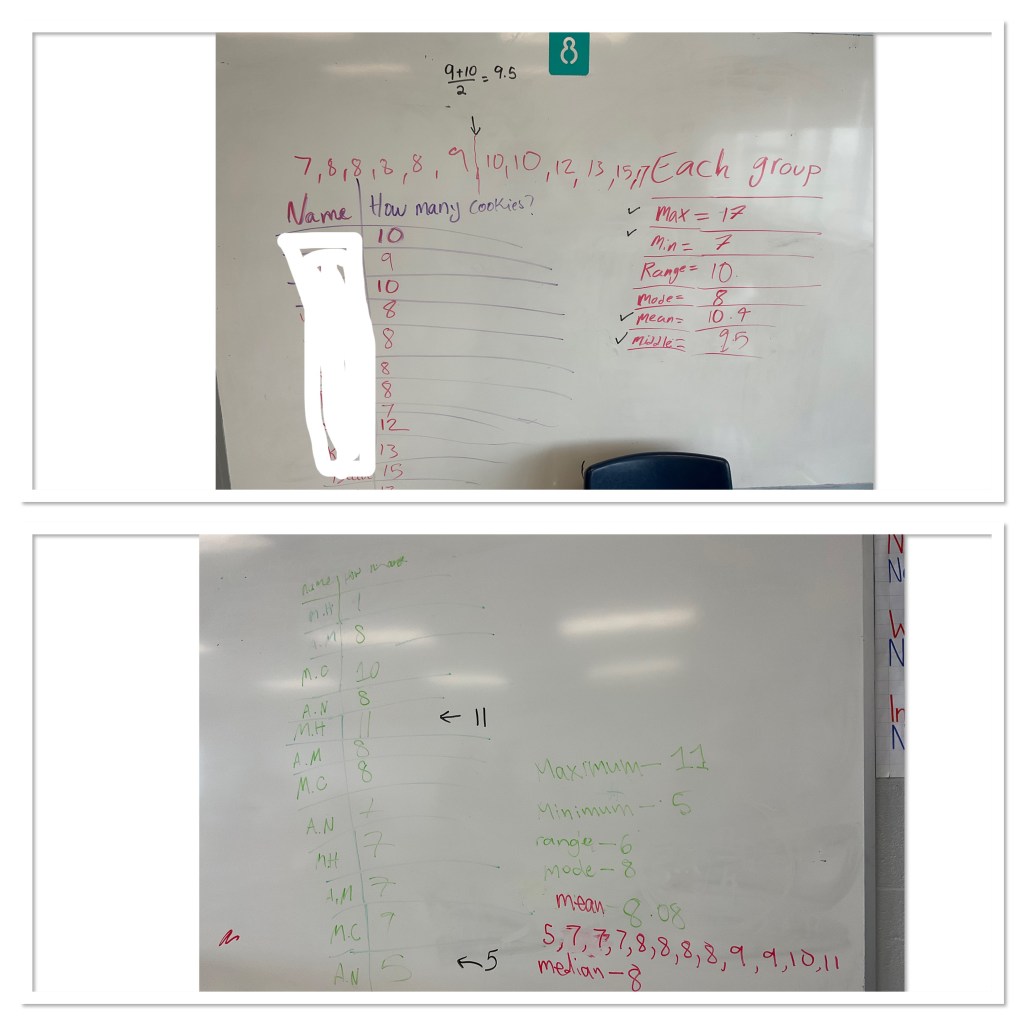 8
9+10
2
= 9.5
7, 8, 8, 8, 8, 9 | 10, 10, 12, 13, 15, 17
Each group
Name | How many cookies?
10
9
10
8
8
8
8
7
12
13
15
Max = 17
Min = 7
Range = 10
mode = 8
mean =
middle = 9.5
name
8
M.O 10
A.N 8
M.H 11
← 11
A.M 8
M.C 8
A.N
M.H 7
7
M.C 7
A.N 5
← 5
Maximum - 11
Minimum - 5
range - 6
mode - 8
mean 8.08
5, 7, 7, 7, 8, 8, 8, 8, 9, 9, 10, 11
median - 8
N
N
W
N
In
N